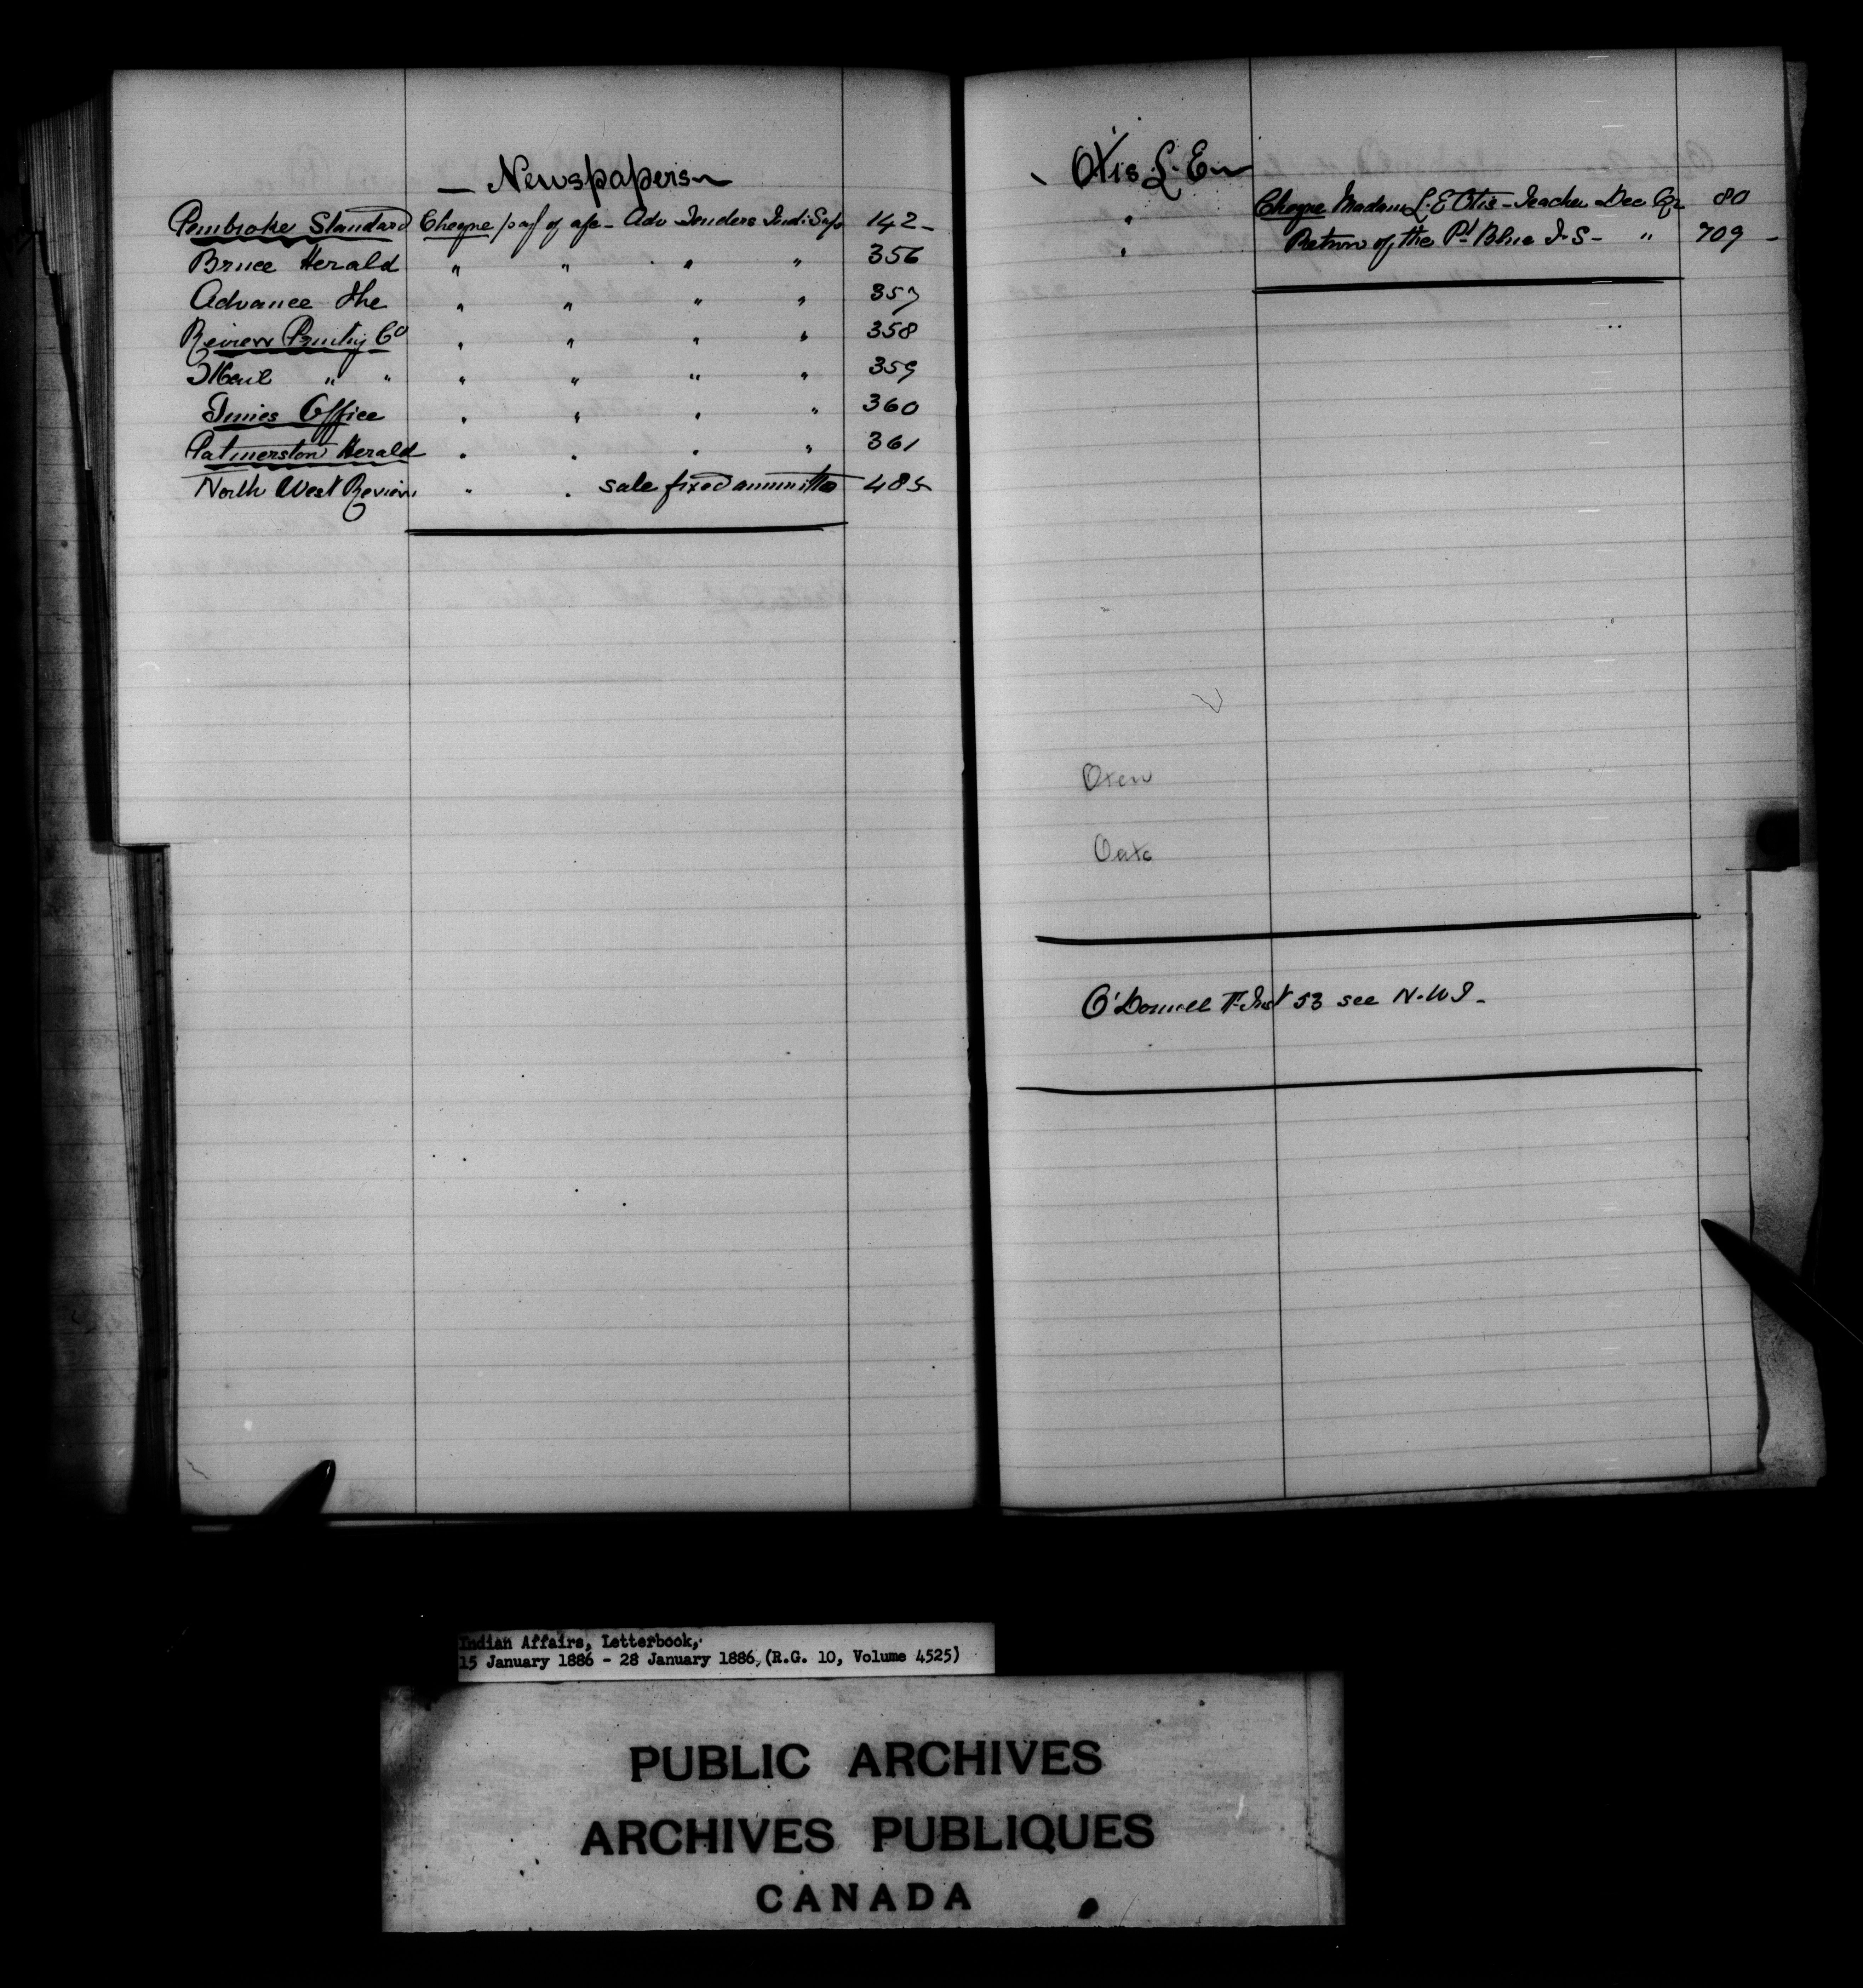 — Newspapers
Pembroke Standard Cheque pay of a/c - Adv Tenders Indi: Sup 142 -
Bruce Herald " " " " 356
Advance The " " " " 357
Review Printg Co " " " " 358
Mail " " " " " " 359
Times Office " " " " 360
Palmerston Herald " " " " 361
North West Review " " sale fixed ammunitio 485
Otis L. E
" Cheque Madam L. E Otis - Teacher Dec Qr 80
" Return of the Pt Blue I. S - " 709 -
Oxen
Oats
O'Donnell 53 see N.W.T -
Indian Affairs, Letterbook,
15 January 1886 - 28 January 1886, (R.G. 10, Volume 4525)
PUBLIC ARCHIVES
ARCHIVES PUBLIQUES
CANADA